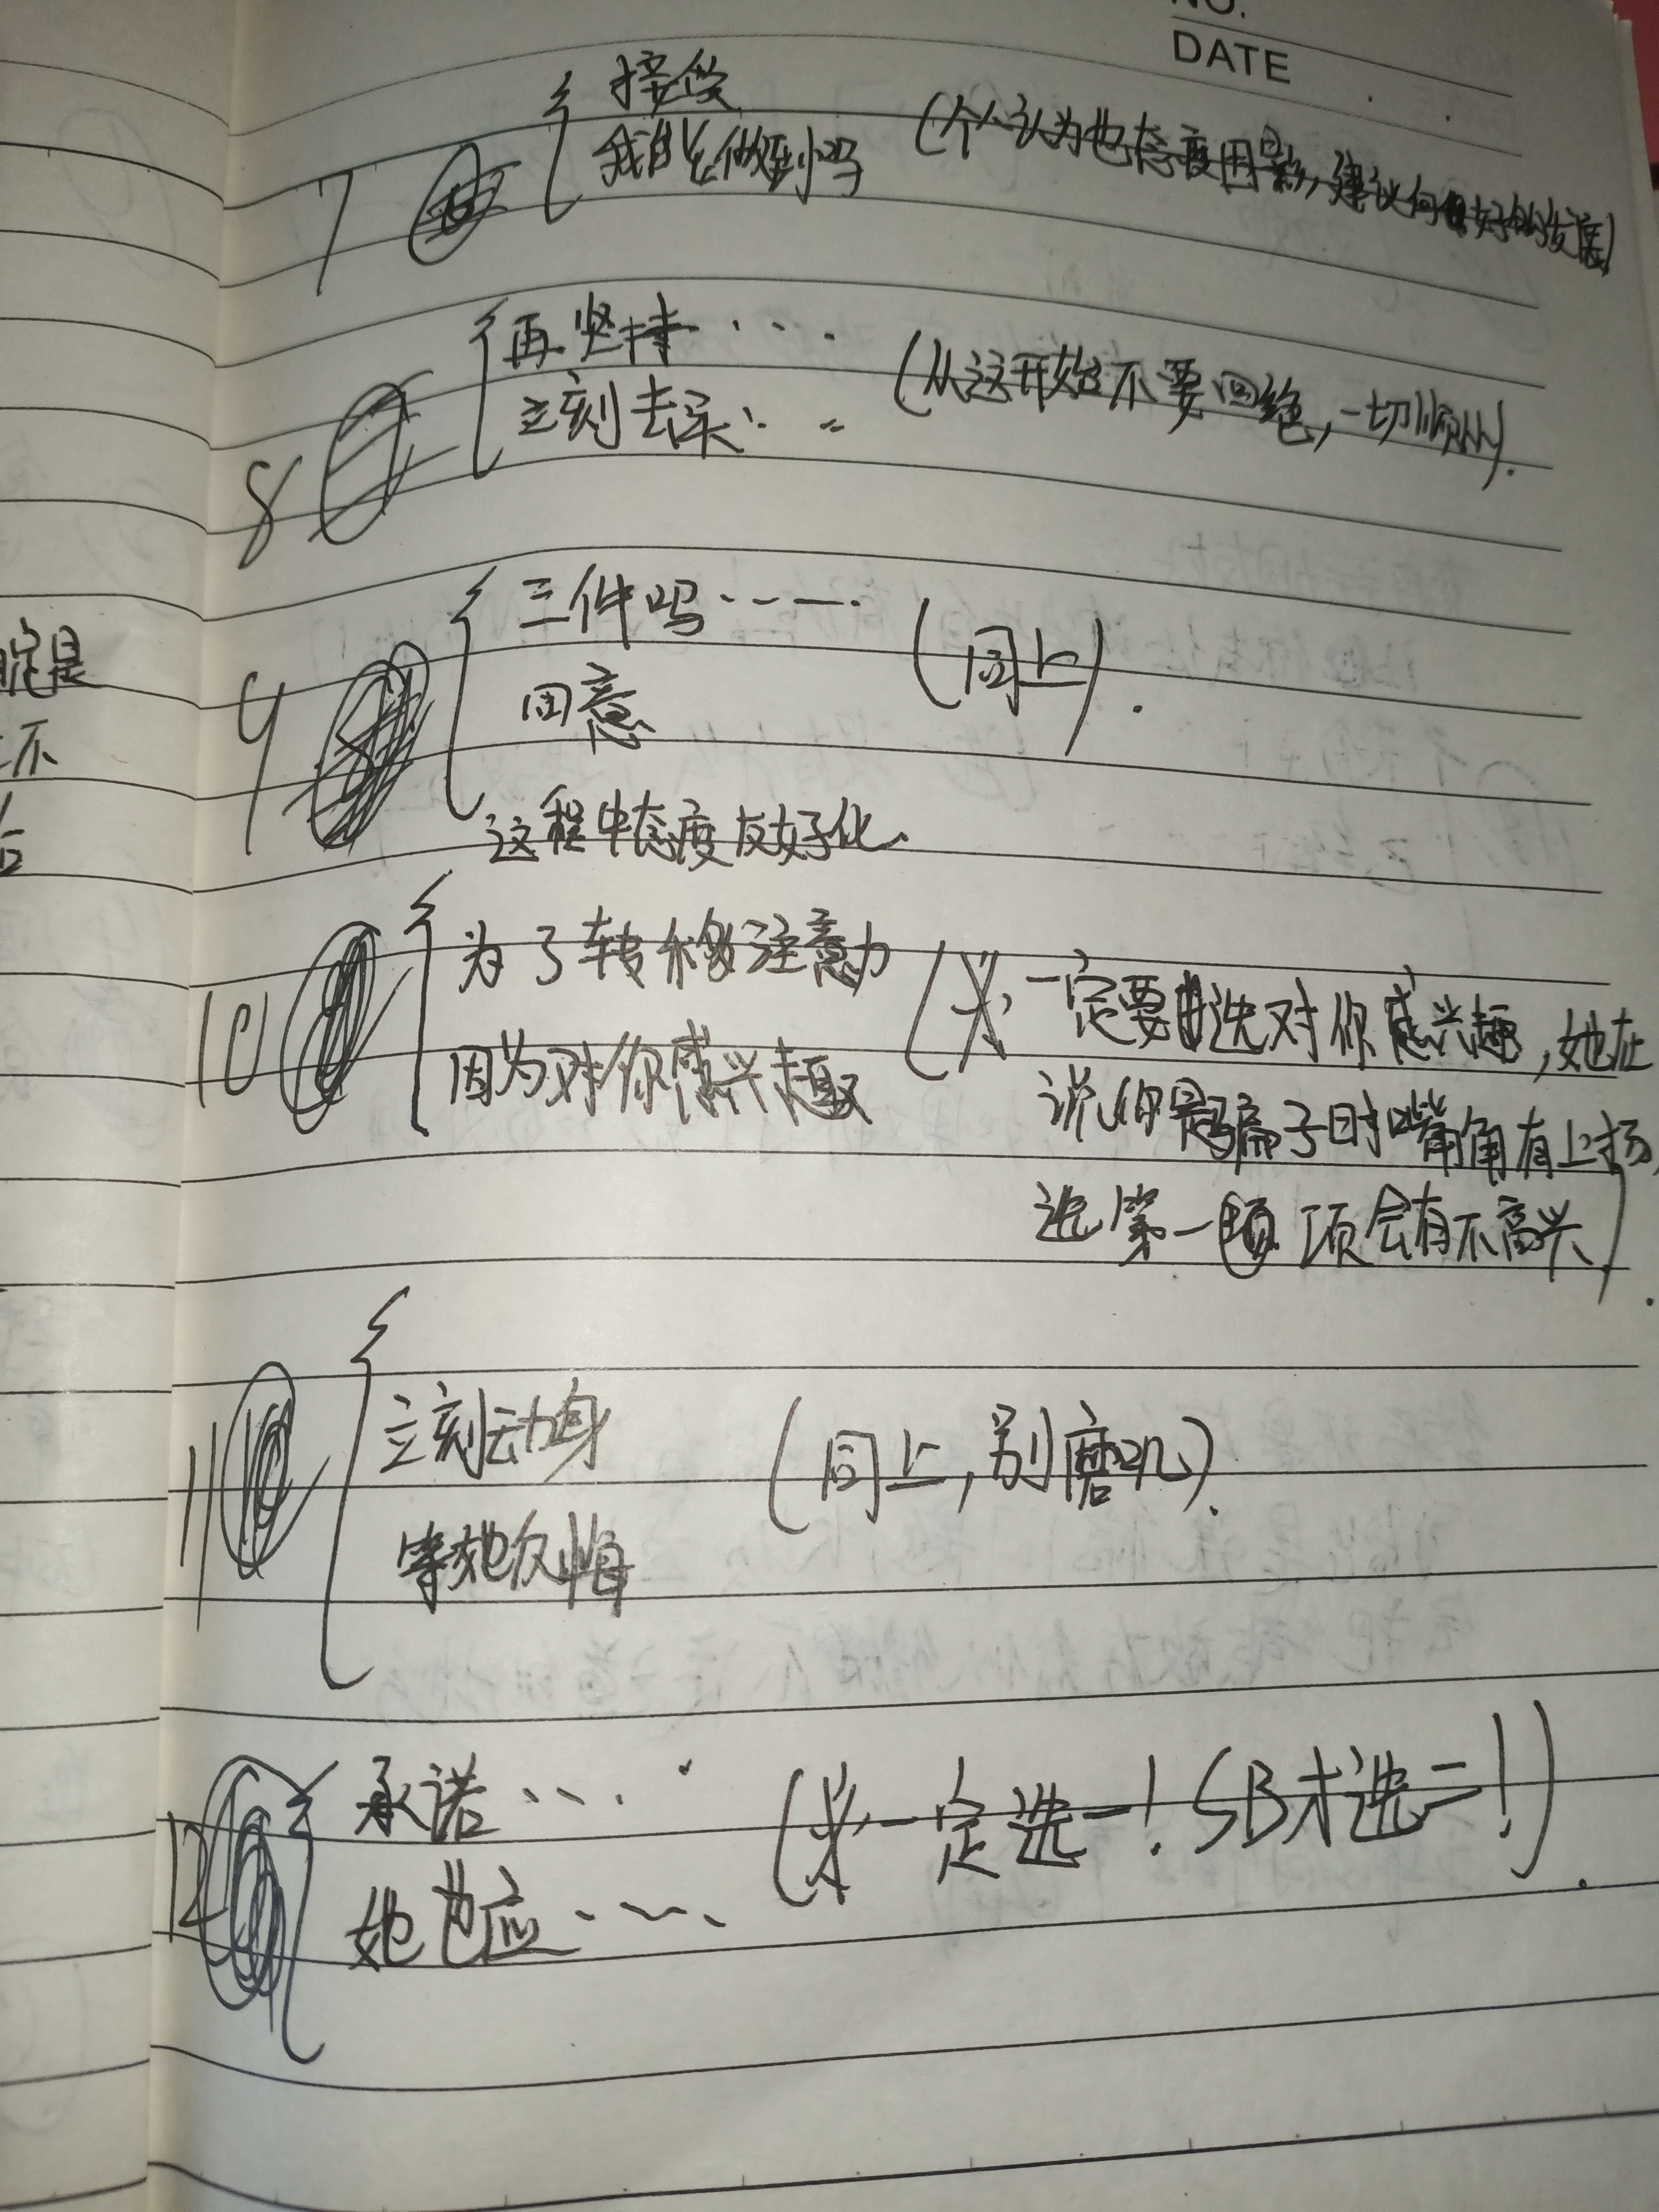 NO.
DATE
7
接受
我能做到吗
(个人认为也态度因素,建议向好的发展)
8
再坚持····
立刻去采···
(从这开始不要回绝,一切顺从).
9
三件吗······
同意
(同上).
这程中态度友好化.
10
为了转移注意力
因为对你感兴趣
(※,一定要选对你感兴趣,她在
说你是骗子时嘴角有上扬,
选第一项会有不高兴).
11
立刻动身
等她反悔
(同上,别磨叽).
12
承诺····
她也应····
(※一定选一!SB才选二!).
定是
不